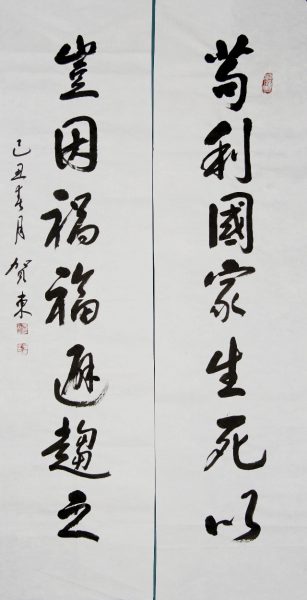 苟利國家生死以
豈因禍福避趨之
己丑春月 賀東